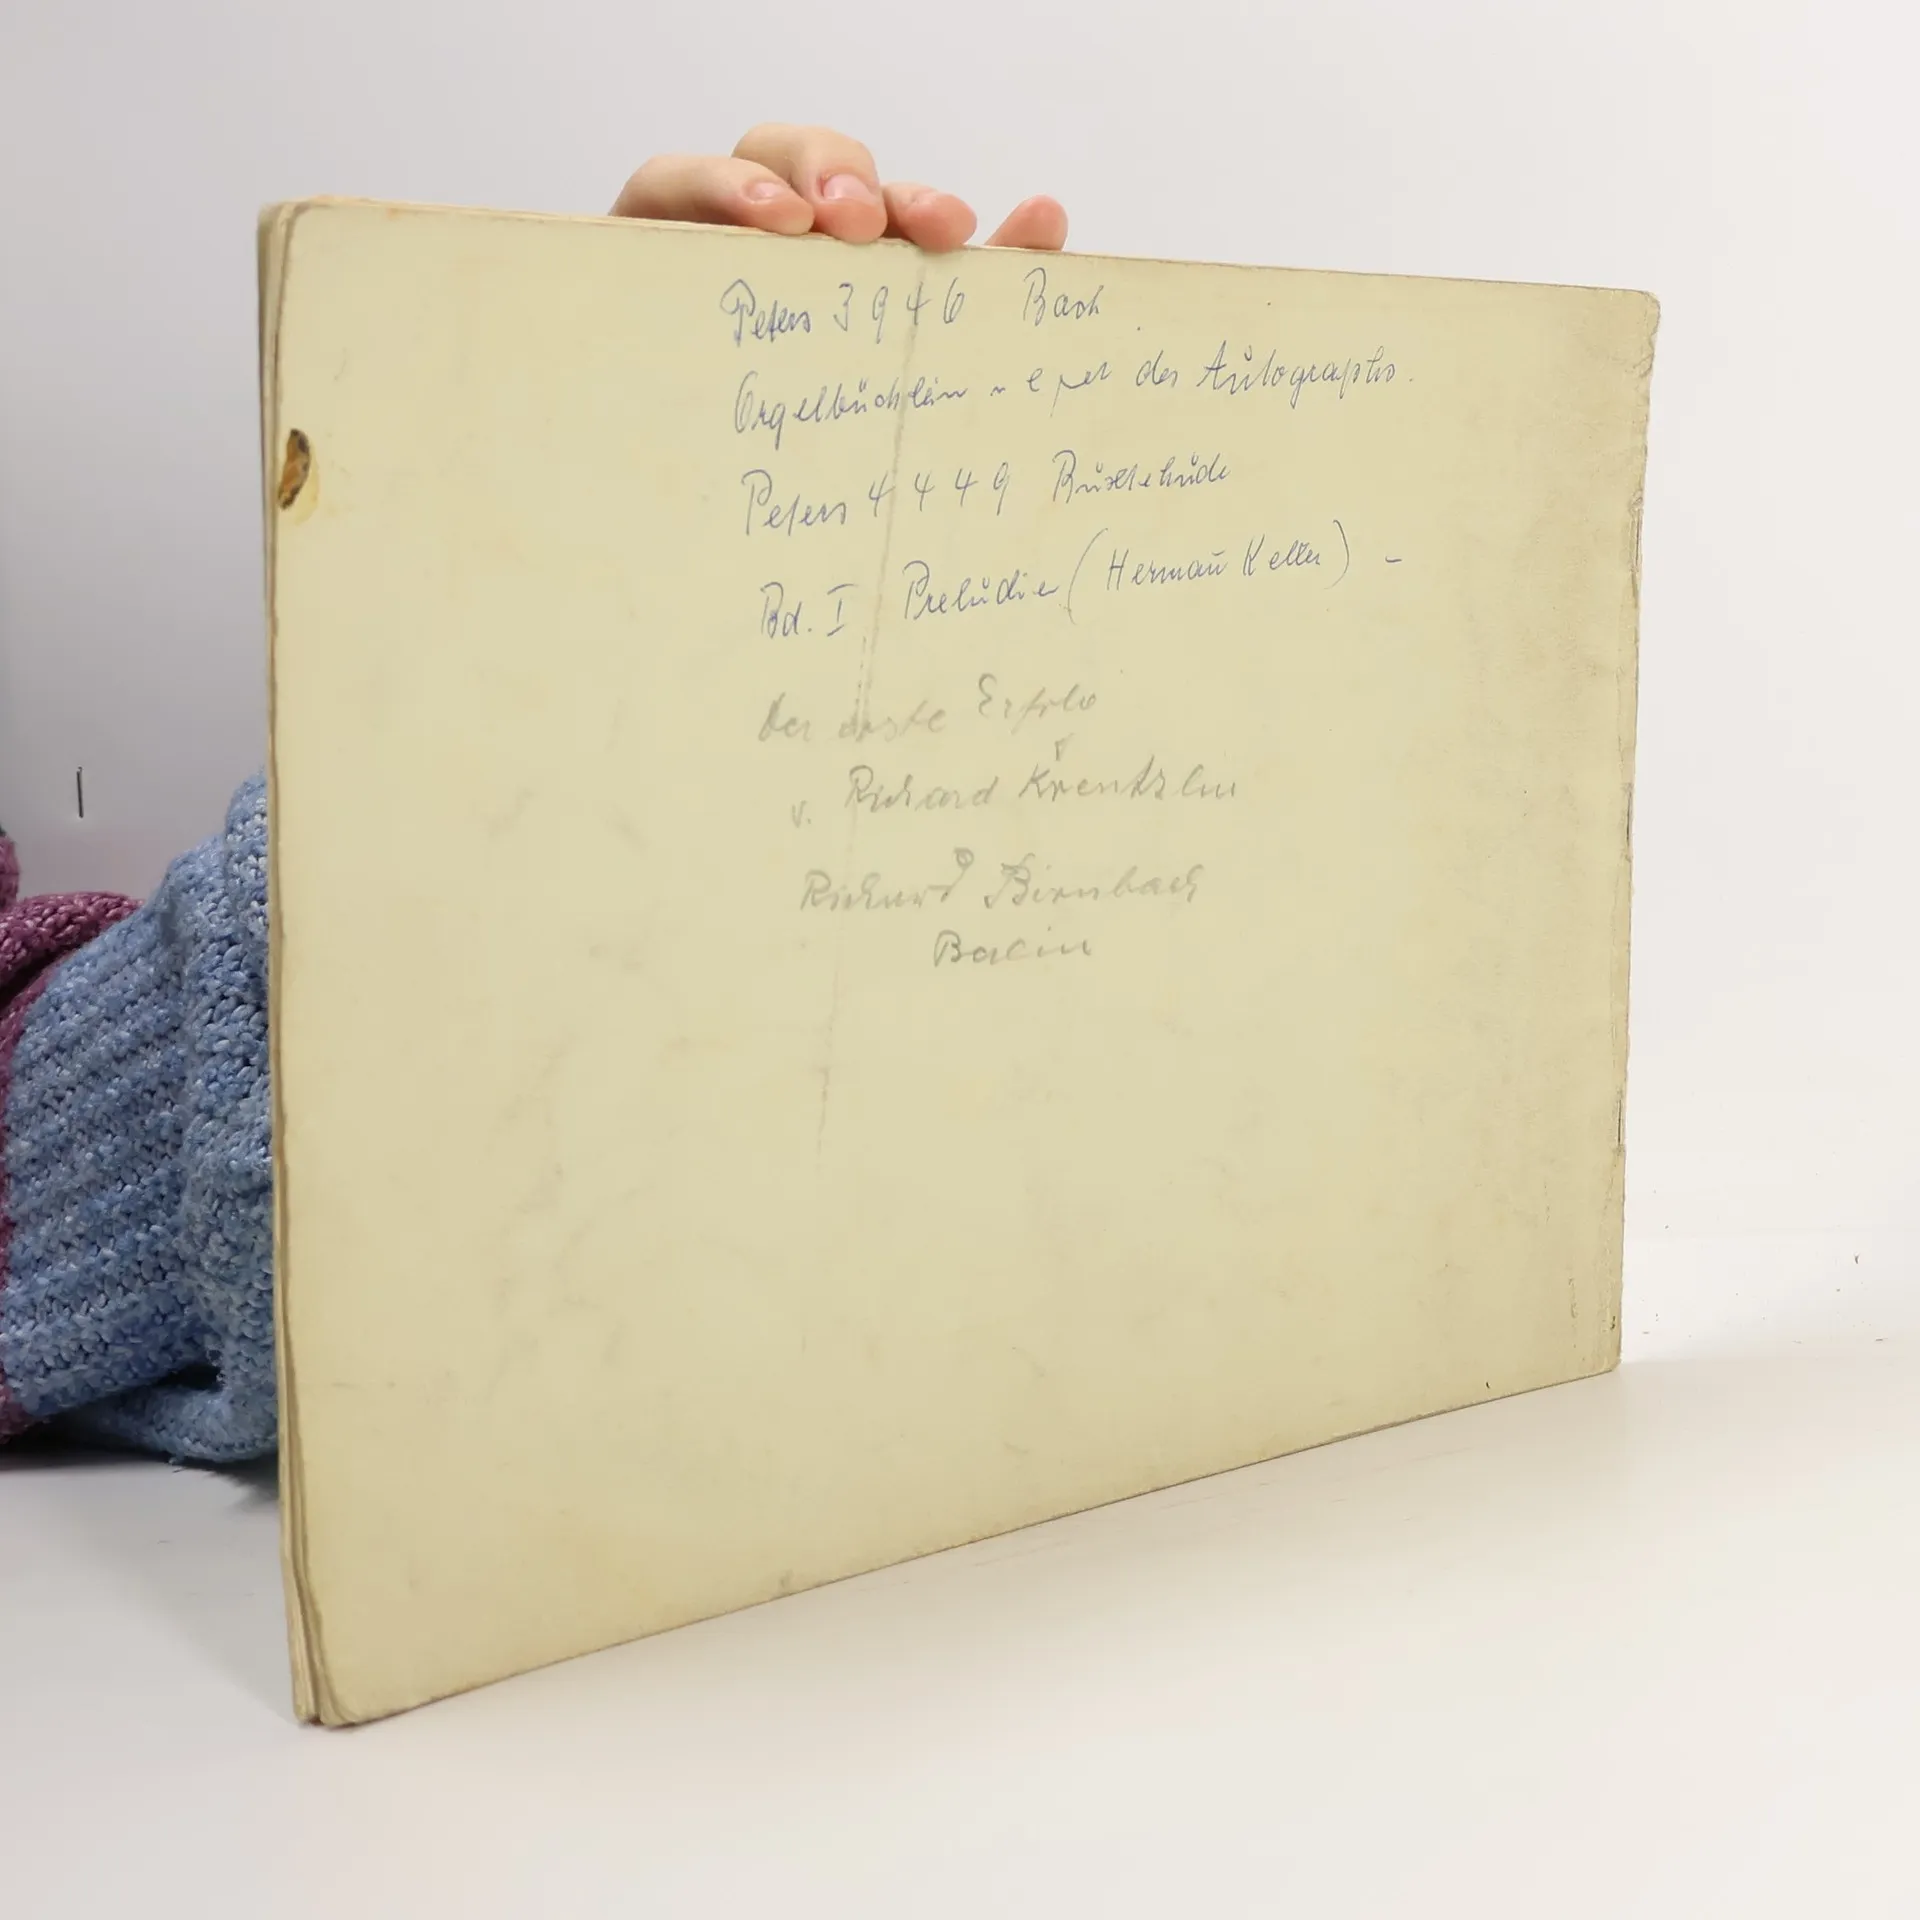 Peters 3946 Bach
Orgelbüchlein des Autographs.
Peters 4449 Buxtehude
Bd. I Preludien (Herman Keller) –
Der erste Erfolg
v. Richard Krentzlin
Richard Birnbach
Berlin